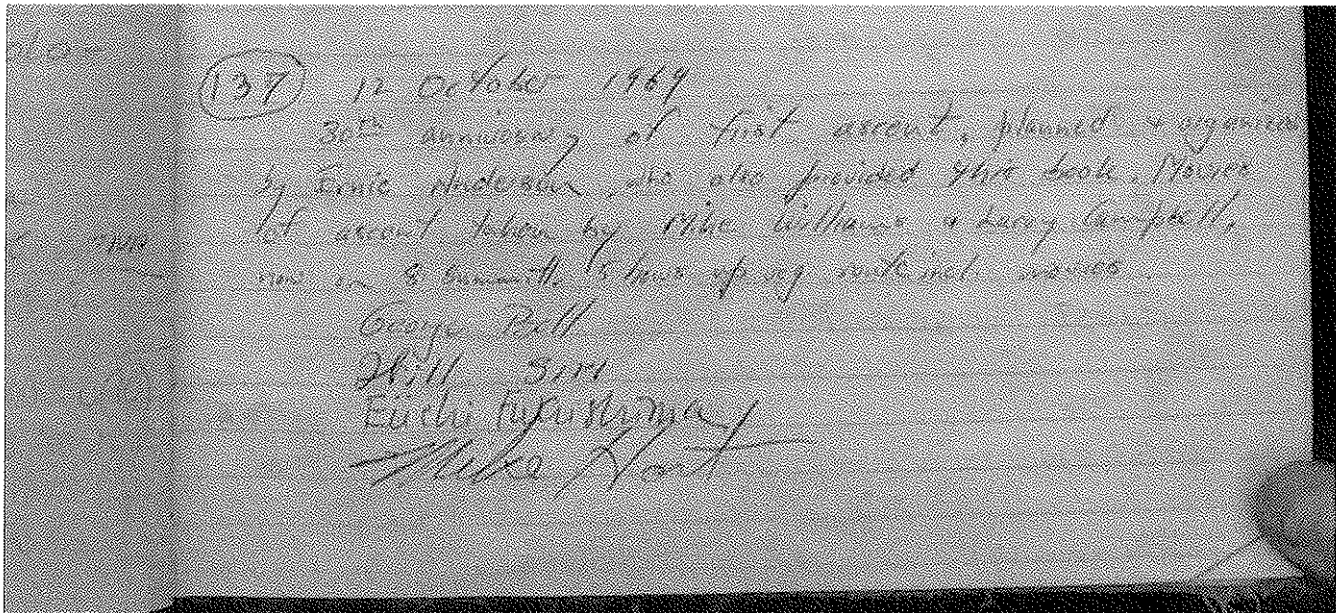 137 12 October 1969
30th anniversary of first ascent, planned + organized
by Ernie Anderson who also provided this book. Movies
of ascent taken by Mike Williams & Larry Campbell,
now on summit. 3 hours
George Bell
Will Siri
Eiichi Fukushima
Mike Hart